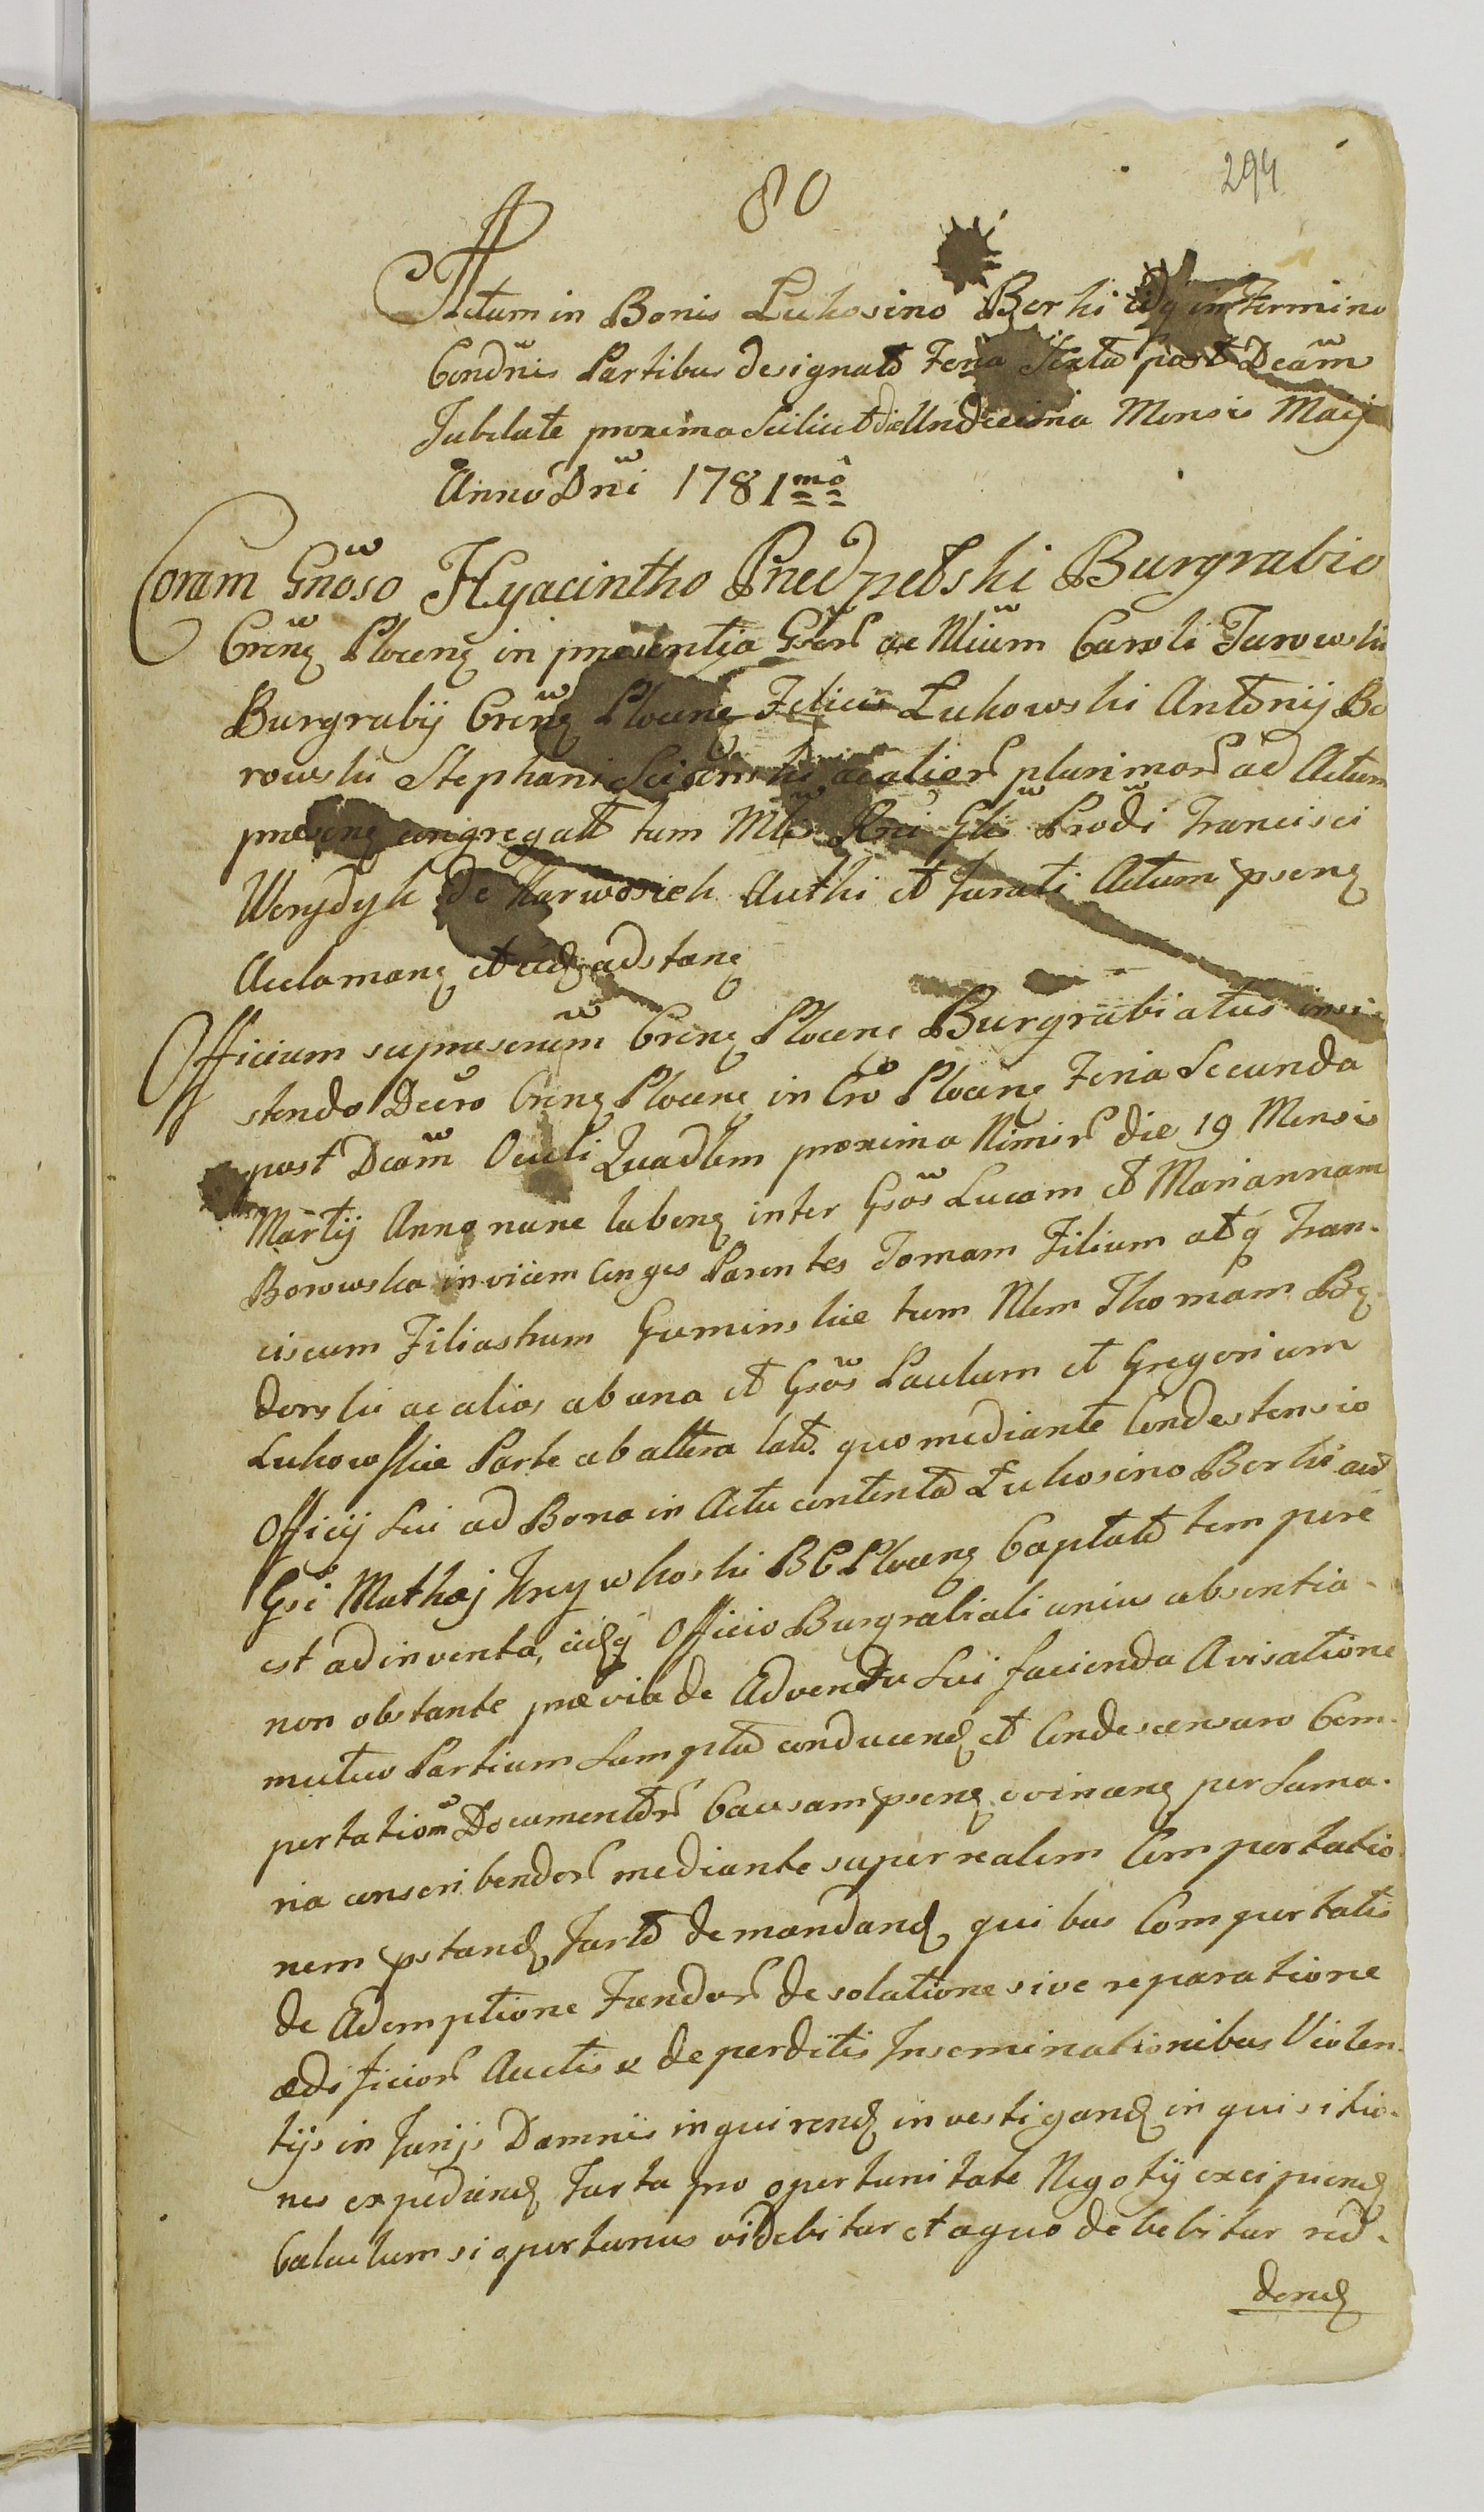 80
294
Actum in Bonis Łukosino Borki idq in Termino
Condnis Partibus designato Feria Sexta post Dcam
Jubilate proxima Scilicet die Undecima Mensis Maij
Anno Dni 1781mo
Coram Gnoso Hyacintho Przedpełski Burgrabio
Crens Plocens in praesentia Gsor ac Nlium Caroli Turowski
Burgrabij Crens Plocens Felicis Łukowski Antonij Bo
rowski Stephani ac alior plurimor ad Actum
praesens congregatt tum Mlis Rni Glis Prodi Francisci
Werydyk de Karwosiek Authi et Jurati Actum psens
Acclamans et eidq adstans
Officium suprascrium Crens Plocens Burgrabiatus insi-
stendo Decro Crens Plocens in Cro Plocens Feria Secunda
post Dcam Oculi Quadlem proxima Nimir die 19 Mensis
Martij Anno nunc labens inter Gsos Lucam et Mariannam
Borowska invicem Conges Parentes Tomam Filium atq Fran-
ciscum Filiastrum Guminskie tum Nlem Thomam Bę-
dorski ac alios ab una et Gsos Paulum et Gregorium
Łukowskie Parte ab altera lato. quo mediante Condestensio
Officij Sui ad Bona in Actu contenta Łukosino Borki ad
Gsi Mathej Krzywkoski BC Plocens Captato tempore
est adinventa, eidq Officio Burgrabiali unius absentia
non obstante praevia de Adventu Sui facienda Avisatione
mutuo Partium Sumptu conducend et Condescensuro Com-
portatiom Documentor Causam psens evincens per Suma-
ria conscribendor mediante super realem Comportatio
nem pstand Jurto demandand quibus Comportatis
de Ademptione Fundor desolatione sive reparatione
aedificior Auctis et deperditis Inseminationibus Violen-
tijs inJurijs Damnis inquirend investigand inquisitio-
nes expediend Jurta pro oportunitate Negotij excipiend
Calculum si oportunus videbitur et a quo debebitur red-
dend